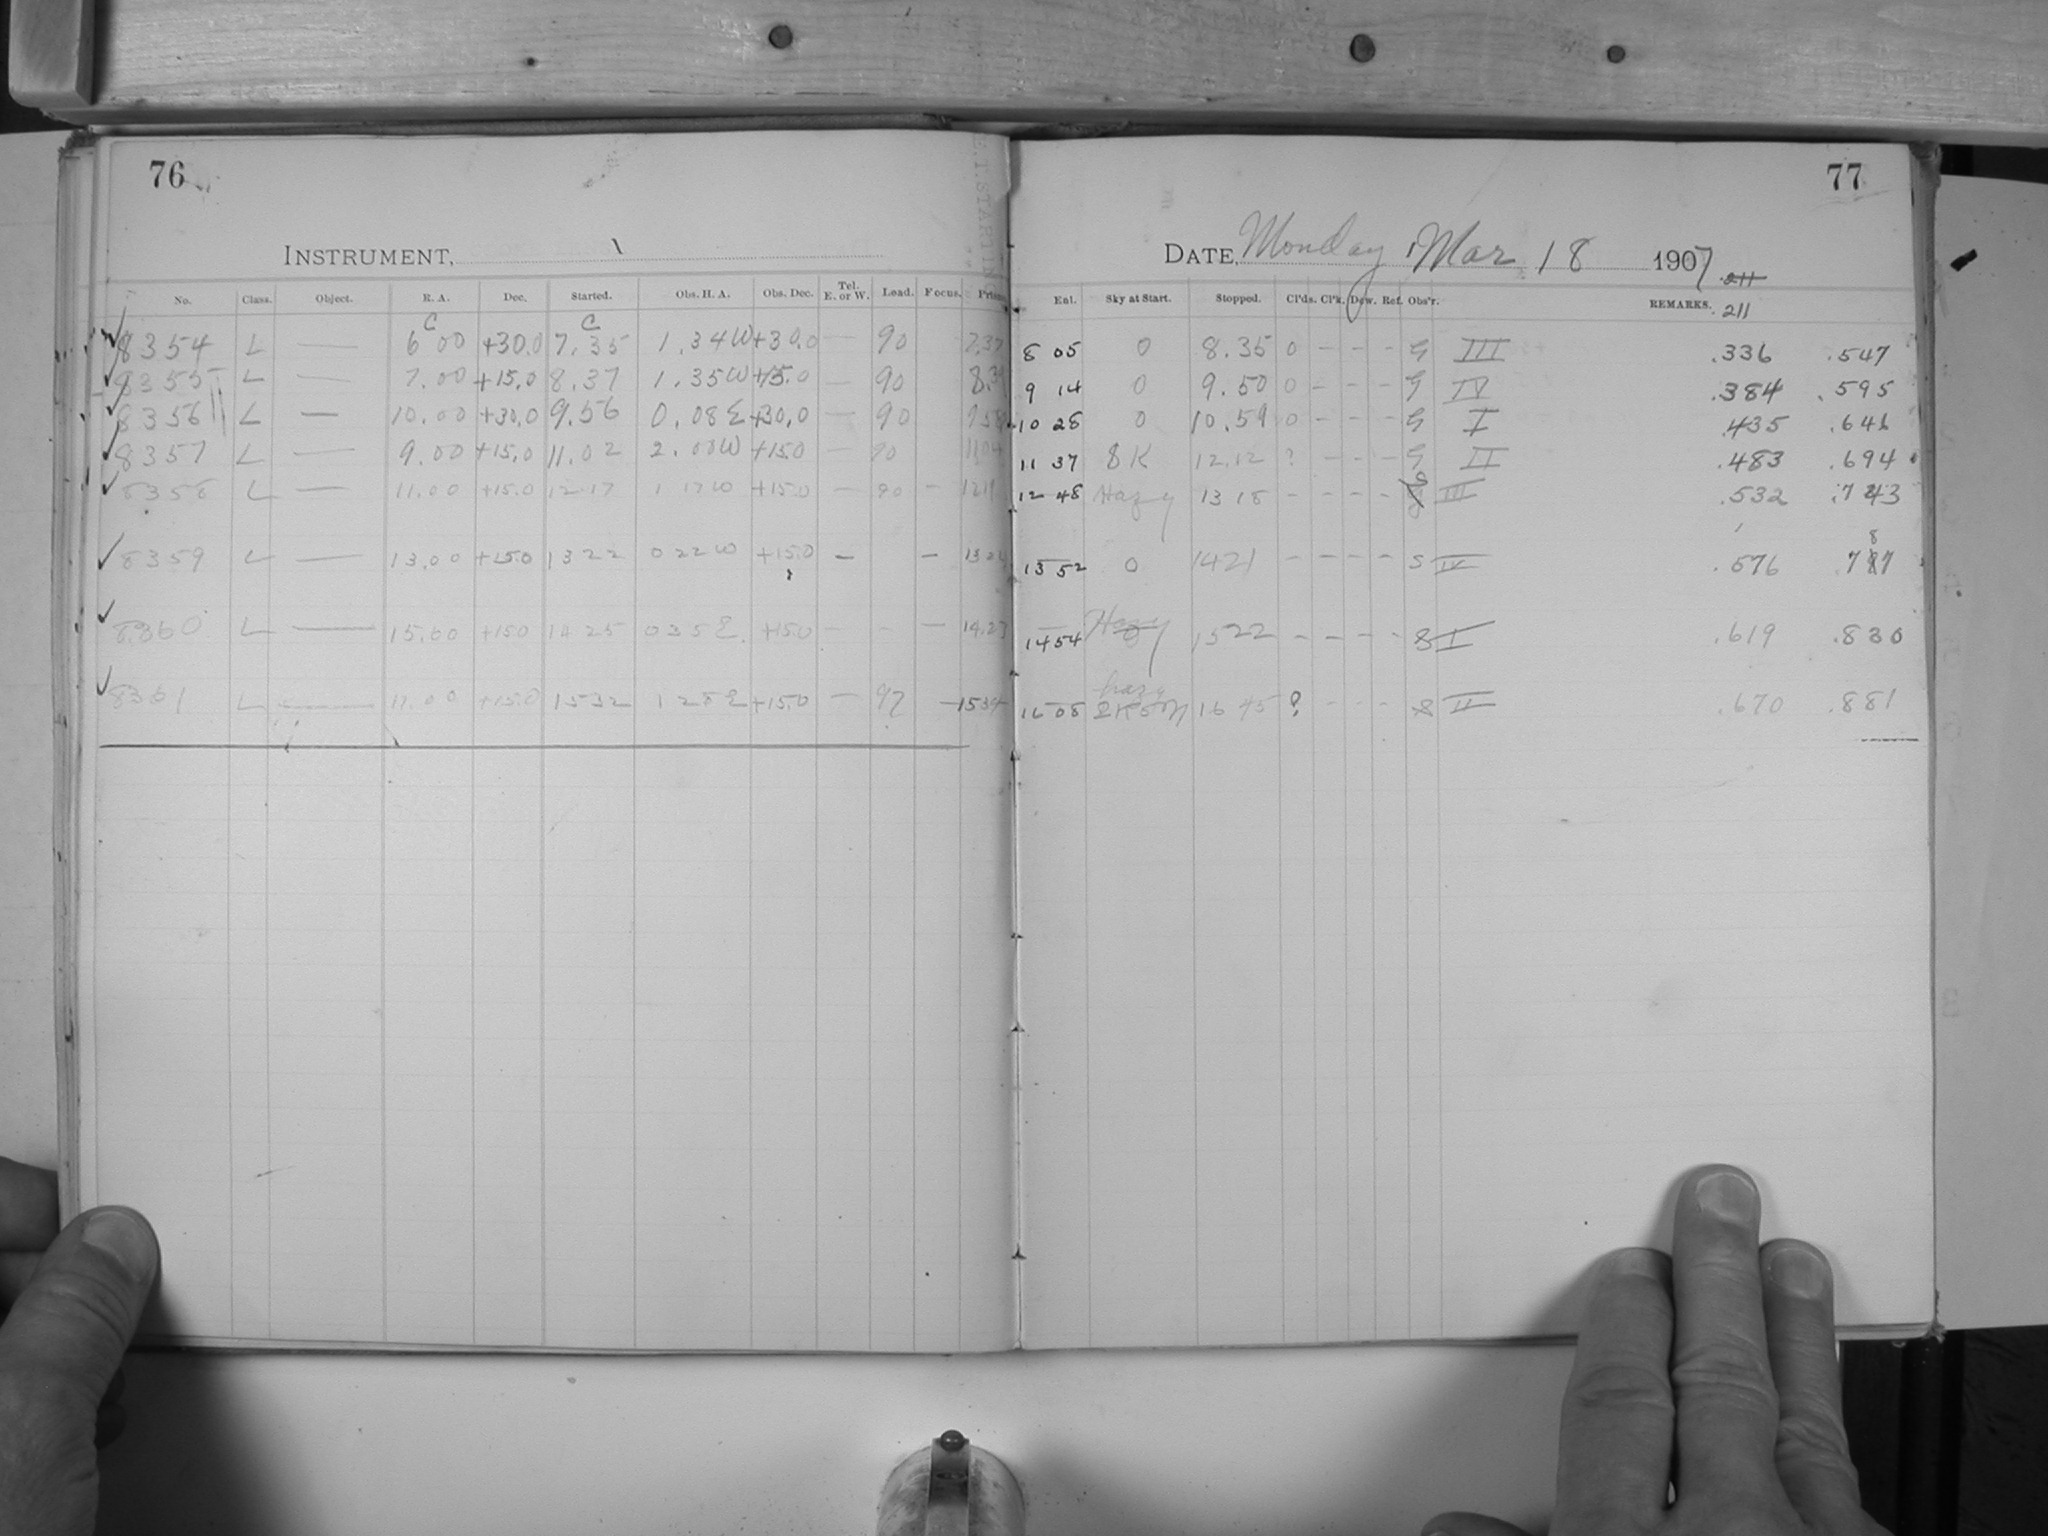 76
INSTRUMENT,
No. Class. Object. R. A. Dec. Started. Obs. H. A. Obs. Dec. Tel. E. or W. Load. Focus.
8354 L — 6 00 +30.0 7.35 1.34W +30.0 — 90 7.37
8355 L — 7.00 +15.0 8.37 1.35W +15.0 — 90 8.39
8356 L — 10.00 +30.0 9.56 0.08E +30.0 — 90 9 58
8357 L — 9.00 +15.0 11.02 2.00W +15.0 — 90 11 04
8358 L — 11.00 +15.0 12 17 1 17W +15.0 — 90 — 12 19
8359 L — 13.00 +15.0 13 22 0 22W +15.0 — — 13 24
8360 L — 15.00 +15.0 14 25 0 35E +15.0 — - — 14.27
8361 L — 17.00 +15.0 15 32 1 28E +15.0 — — 15 34
77
DATE, Monday Mar 18 1907
211
Enl. Sky at Start. Stopped. Cl'ds. Cl'k. Dew. Ref. Obs'r. REMARKS. 211
8 05 0 8.35 0 - - - G III .336 .547
9 14 0 9.50 0 - - - G IV .384 .595
10 28 0 10.59 0 - - - G I .435 .646
11 37 8K 12.12 ? - - - G II .483 .694
12 48 Hazy 13 18 - - - - S III .532 .743
13 52 0 14 21 - - - - S IV .576 .787
14 54 Hazy 15 22 - - - - S I .619 .830
16 08 hazy 16 45 ? - - - S II .670 .881